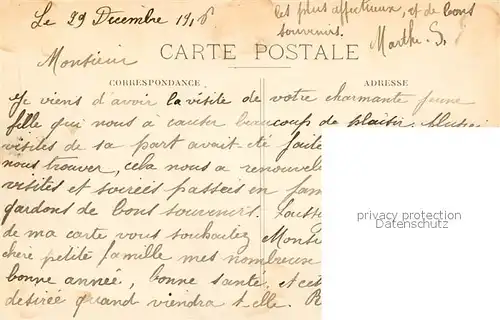 Le 29 Decembre 19
les plus affectueux, et de bons
souvenirs.
Marthe. S.
Monsieur
CARTE POSTALE
CORRESPONDANCE
ADRESSE
Je viens d'avoir la visite de votre charmante jeune
fille qui nous à causer beaucoup de plaisir.
visites de sa part avait été faite
nous trouver, cela nous a
visites et soirées passees in fam
gardons de bons souvenirs.
de ma carte vous souhaitez Monsi
chère petite famille mes nombreux
bonne année, bonne santé, et cet
desirée quand viendra t elle.
privacy protection
Datenschutz